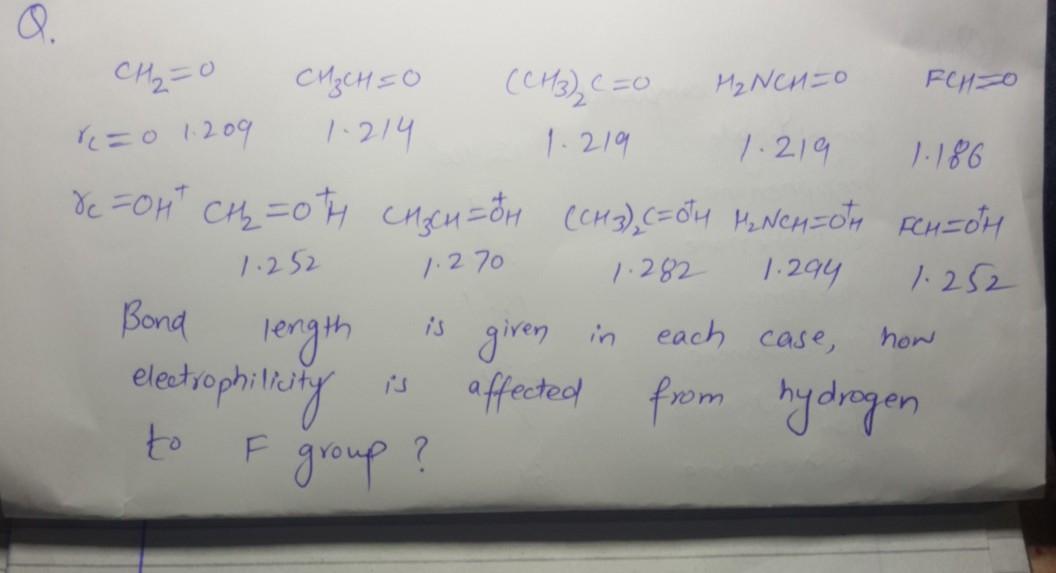 Q.
CH₂=O CH₃CH=O (CH₃)₂C=O H₂NCH=O FCH=O
rc=o 1.209 1.214 1.219 1.219 1.186
rc=OH⁺ CH₂=O⁺H CH₃CH=O⁺H (CH₃)₂C=O⁺H H₂NCH=O⁺H FCH=O⁺H
1.252 1.270 1.282 1.294 1.252
Bond length is given in each case, how
electrophilicity is affected from hydrogen
to F group ?